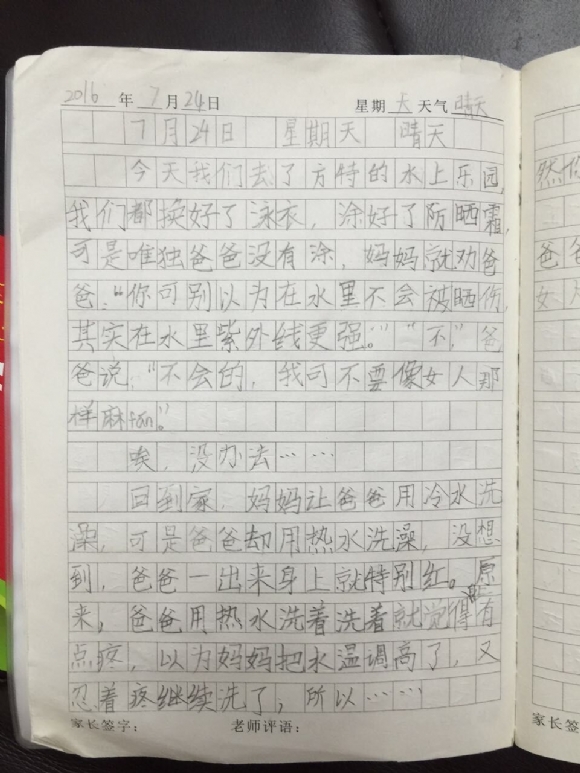 2016 年 7 月 24 日 星期 天 天气 晴天
7月24日 星期天 晴天
今天我们去了方特的水上乐园,
我们都换好了泳衣，涂好了防晒霜,
可是唯独爸爸没有涂，妈妈就劝爸
爸：“你可别以为在水里不会被晒伤,
其实在水里紫外线更强。”“不，”爸
爸说，“不会的，我可不要像女人那
样麻fan。”
唉，没办法……
回到家，妈妈让爸爸用冷水洗
澡，可是爸爸却用热水洗澡，没想
到，爸爸一出来身上就特别红。原
来，爸爸用热水洗着洗着就觉得有
点疼，以为妈妈把水温调高了，又
忍着疼继续洗了，所以……
家长签字： 老师评语：
然你
爸爸
女人
家长签